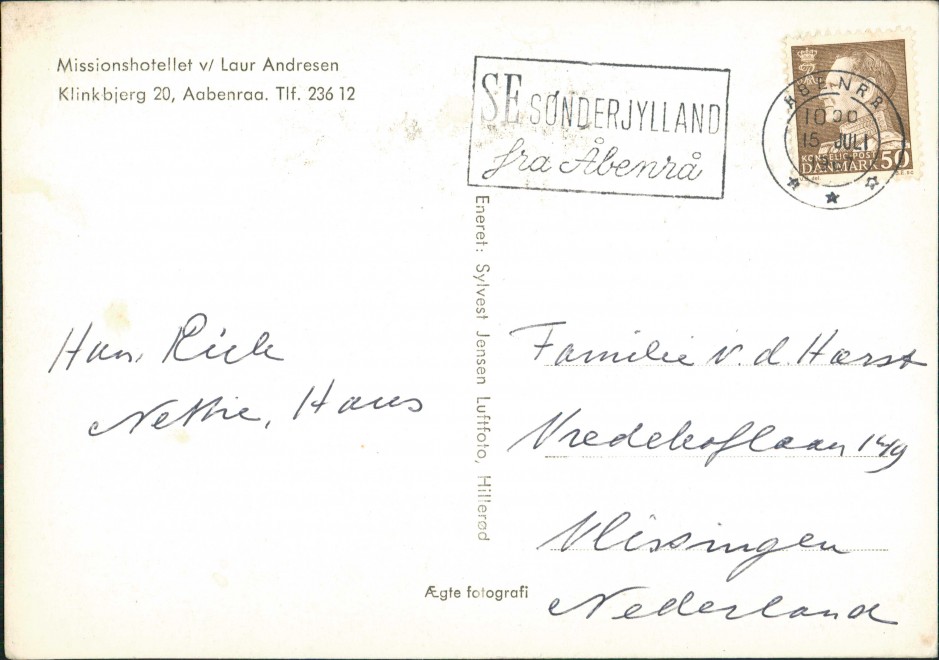 Missionshotellet v/ Laur Andresen
Klinkbjerg 20, Aabenraa. Tlf. 236 12
SE SØNDERJYLLAND
fra Åbenrå
ÅBENRÅ
1000
15 JULI
KONGELIG·POST
DANMARK 50
Eneret: Sylvest Jensen Luftfoto, Hillerød
Han, Riek
Nettie, Hans
Familie v. d. Harst
Vredehoflaan 149
Vlissingen
Nederland
Ægte fotografi